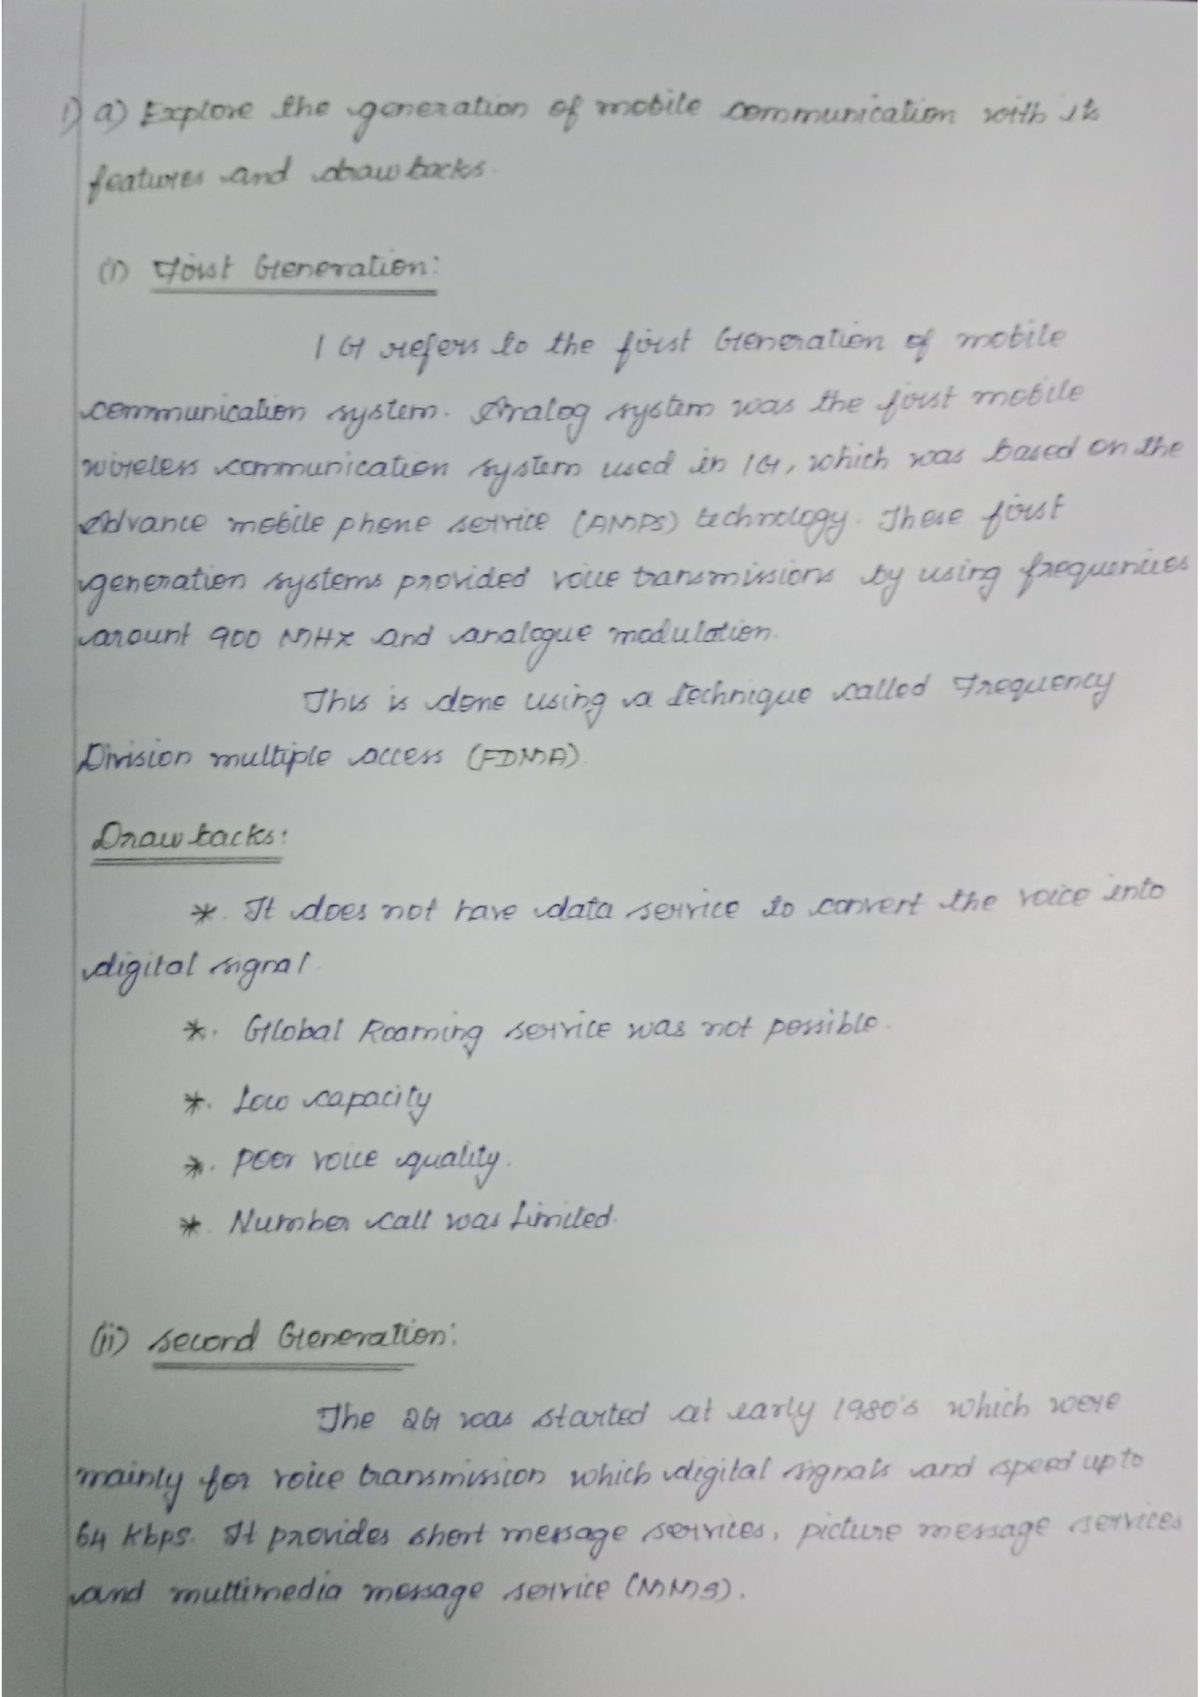 1) a) Explore the generation of mobile communication with its
features and drawbacks.
(i) First Generation:
1G refers to the first Generation of mobile
communication system. Analog system was the first mobile
wireless communication system used in 1G, which was based on the
Advance mobile phone service (AMPS) technology. These first
generation systems provided voice transmissions by using frequencies
arount 900 MHz and analogue modulation.
This is done using a technique called Frequency
Division multiple access (FDMA).
Drawbacks:
* It does not have data service to convert the voice into
digital signal.
*. Global Roaming service was not possible.
*. Low capacity
*. poor voice quality.
*. Number call was limited.
(ii) Second Generation:
The 2G was started at early 1980's which were
mainly for voice transmission which digital signals and speed upto
64 kbps. It provides short message services, picture message services
and multimedia message service (MMS).